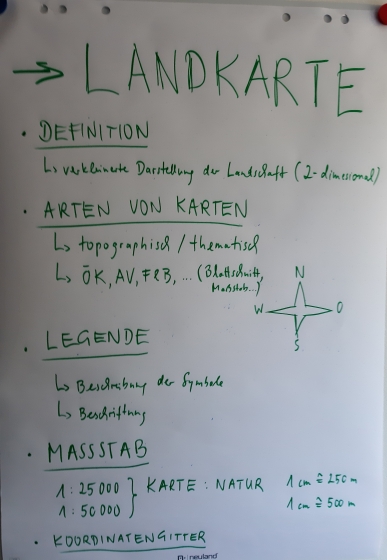 → LANDKARTE
• DEFINITION
↳ verkleinerte Darstellung der Landschaft (2-dimesional)
• ARTEN VON KARTEN
↳ topographisch / thematisch
↳ ÖK, AV, F&B, ... (Blattschnitt,
Maßstab...)
N
W O
S
• LEGENDE
↳ Beschreibung der Symbole
↳ Beschriftung
• MASSSTAB
1 : 25 000 } KARTE : NATUR 1 cm ≙ 250 m
1 : 50 000 1 cm ≙ 500 m
• KOORDINATENGITTER
neuland